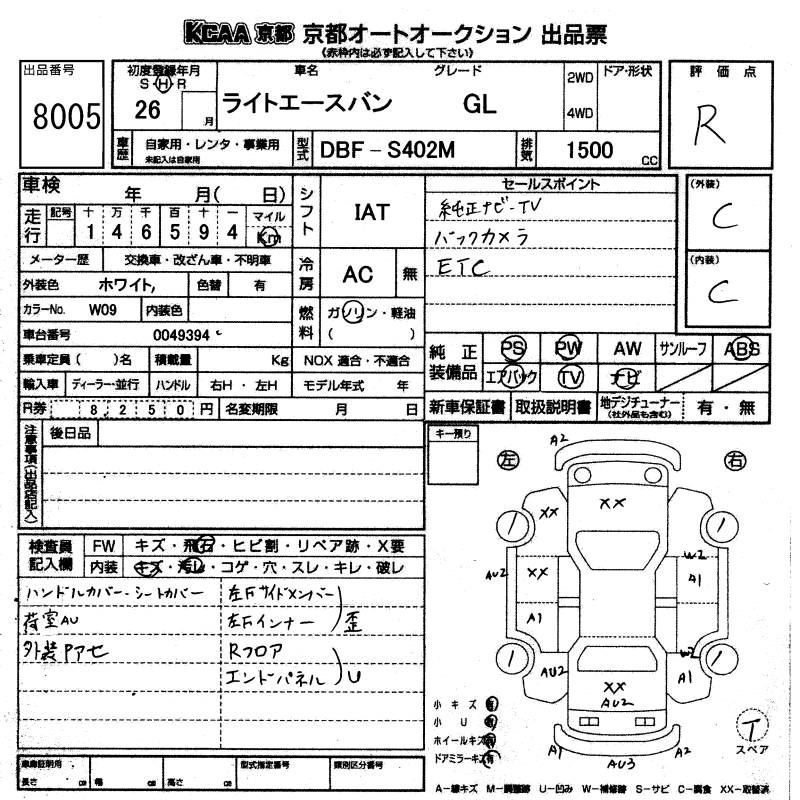 KCAA 京都 京都オートオークション 出品票
《赤枠内は必ず記入して下さい》
出品番号
8005
初度登録年月
S・H・R
26
月
車名
グレード
ライトエースバン GL
2WD
4WD
ドア・形状
評価点
R
車歴
自家用・レンタ・事業用
未記入は自家用
型式
DBF-S402M
排気
1500
CC
車検 年 月( 日)
走行
記号
十 万 千 百 十 一
1 4 6 5 9 4
マイル
Km
シフト
IAT
メーター歴
交換車・改ざん車・不明車
冷房
AC
無
外装色
ホワイト,
色替
有
カラーNo.
W09
内装色
燃料
ガソリン・軽油
( )
車台番号
0049394
乗車定員( )名
積載量
Kg
NOX 適合・不適合
輸入車
ディーラー・並行
ハンドル
右H・左H
モデル年式 年
R券
8,250円
名変期限 月 日
セールスポイント
純正ナビ-TV
バックカメラ
ETC
(外装)
C
(内装)
C
純正装備品
PS
PW
AW
サンルーフ
ABS
エアバック
TV
ナビ
新車保証書
取扱説明書
地デジチューナー
(社外品も含む)
有・無
注意事項(出品店記入)
後日品
キー預り
検査員記入欄
FW
キズ・飛石・ヒビ割・リペア跡・X要
内装
キズ・汚レ・コゲ・穴・スレ・キレ・破レ
ハンドルカバー・シートカバー
荷室AU
外装Pアセ
左Fサイドメンバー
左Fインナー
歪
Rフロア
エンドパネル
U
左
右
A2
XX
XX
W2
AU2
XX
A1
A1
W2
AU2
A1
XX
AU2
A1
AU3
A2
小キズ 有
小U 有
ホイールキズ 有
ドアミラーキズ 有
T
スペア
車庫証明用
長さ cm
幅 cm
高さ cm
型式指定番号
類別区分番号
A-線キズ M-調整跡 U-凹み W-補修跡 S-サビ C-腐食 XX-取替済